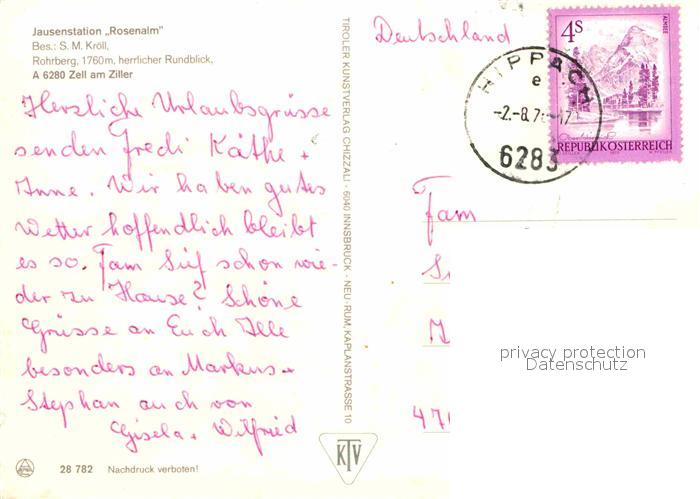 Jausenstation „Rosenalm"
Bes.: S. M. Kröll,
Rohrberg, 1760m, herrlicher Rundblick,
A 6280 Zell am Ziller
Herzliche Urlaubsgrüsse
senden Fredi Käthe +
Anne. Wir haben gutes
Wetter hoffendlich bleibt
es so. Fam schon wie-
der zu Hause? Schöne
Grüsse an Euch Alle
besonders an Markus +
Stephan auch von
Gisela + Wilfried
28 782 Nachdruck verboten!
TIROLER KUNSTVERLAG CHIZZALI · 6040 INNSBRUCK - NEU-RUM, KAPLANSTRASSE 10
KTV
Deutschland
HIPPACH
e
-2.-8.7 -17
6283
4S
ALMSEE
REPUBLIK ÖSTERREICH
Fam
47
privacy protection
Datenschutz